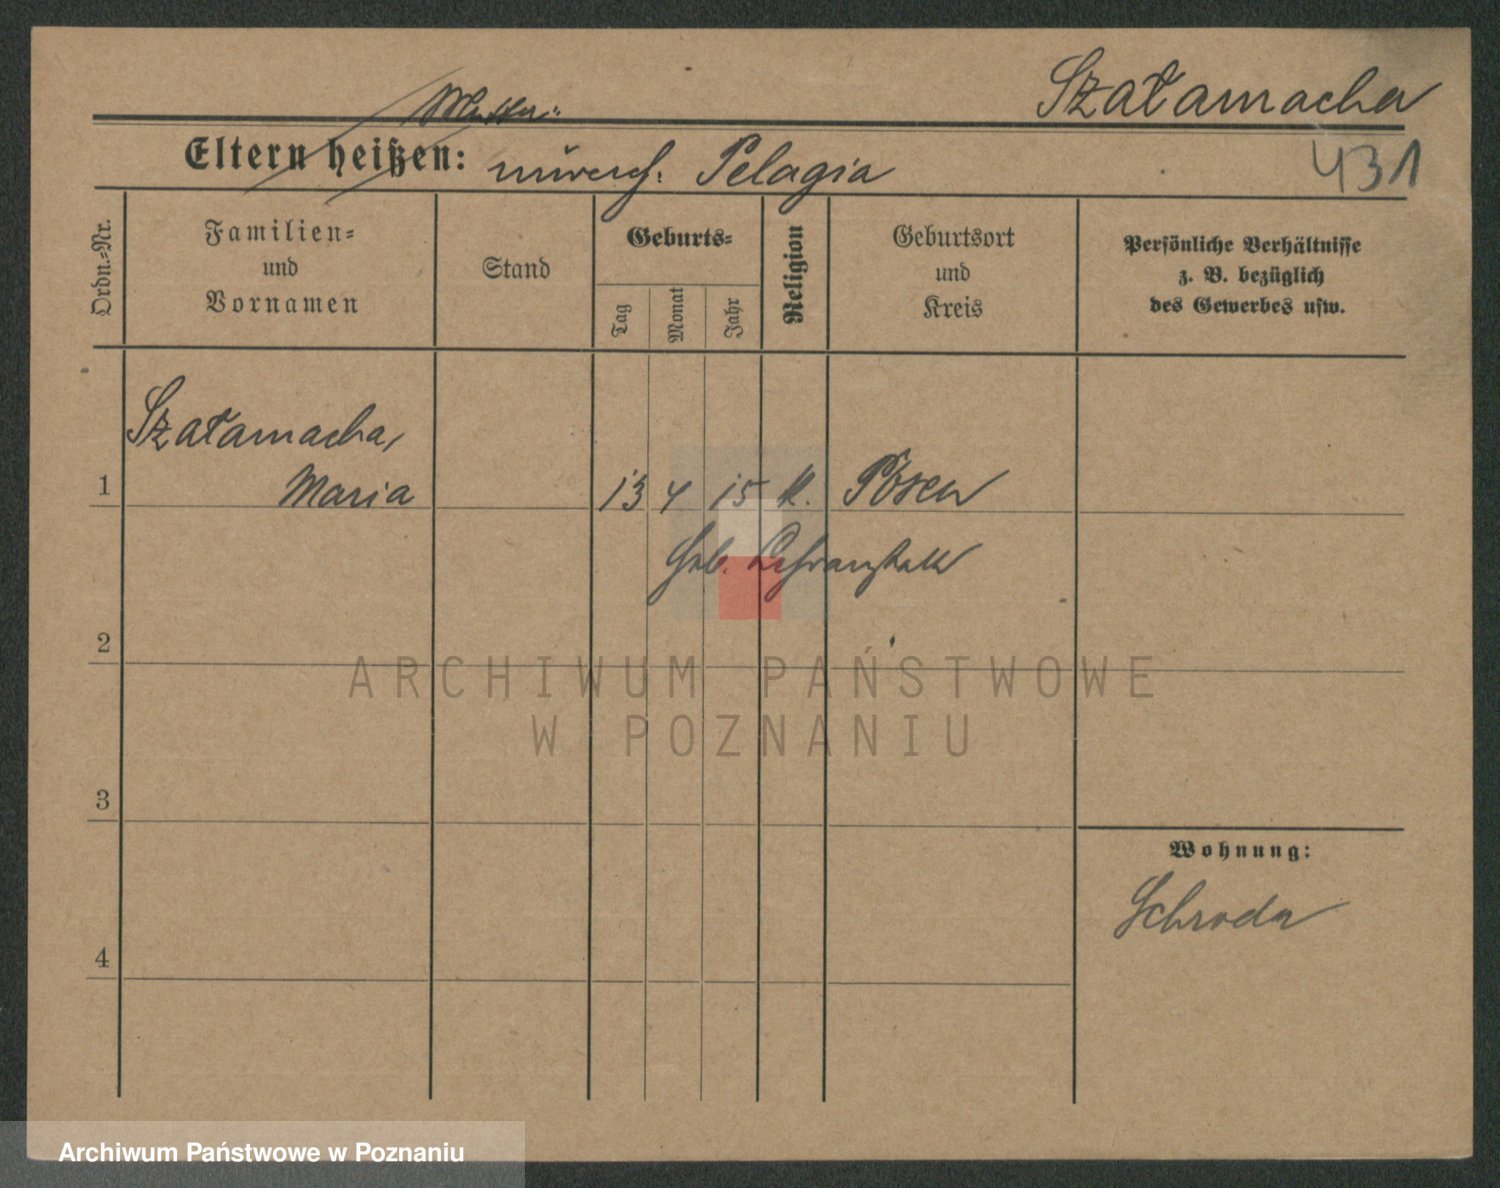 Szałamacha
Mutter:
Eltern heißen: unverh. Pelagia
431
Ordn.-Nr.
Familien-
und
Vornamen
Stand
Geburts-
Tag
Monat
Jahr
Religion
Geburtsort
und
Kreis
Persönliche Verhältnisse
z. B. bezüglich
des Gewerbes usw.
Szałamacha,
1 Maria 13 4 15 k. Posen
Heb. Lehranstalt
2
ARCHIWUM PAŃSTWOWE
W POZNANIU
3
Wohnung:
Schroda
4
Archiwum Państwowe w Poznaniu